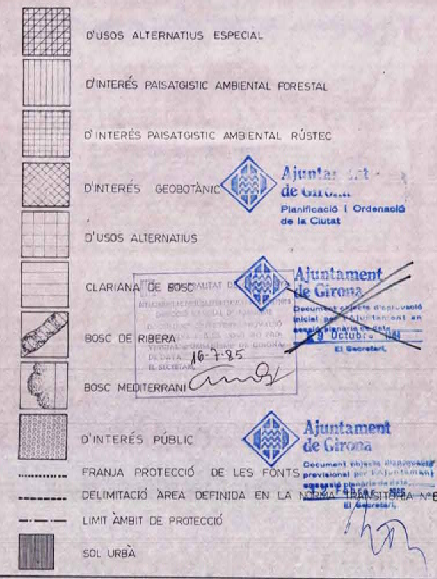 D'USOS ALTERNATIUS ESPECIAL
D'INTERÉS PAISATGISTIC AMBIENTAL FORESTAL
D'INTERÉS PAISATGISTIC AMBIENTAL RÚSTEC
D'INTERÉS GEOBOTÀNIC
Ajuntament
de Girona
Planificació i Ordenació
de la Ciutat
D'USOS ALTERNATIUS
CLARIANA DE BOSC
Ajuntament
de Girona
Document objecte d'aprovació
inicial per l'Ajuntament en
sessió plenària de data
9 Octubre 1984
El Secretari,
BOSC DE RIBERA
DE DATA 16-7-85
EL SECRETARI,
BOSC MEDITERRANI
D'INTERÉS PÚBLIC
Ajuntament
de Girona
Document objecte d'aprovació
provisional per l'Ajuntament
en sessió plenària de data
El Secretari,
FRANJA PROTECCIÓ DE LES FONTS
DELIMITACIÓ ÀREA DEFINIDA EN LA NORMA TRANSITÒRIA Nº6
LIMIT ÀMBIT DE PROTECCIÓ
SOL URBÀ